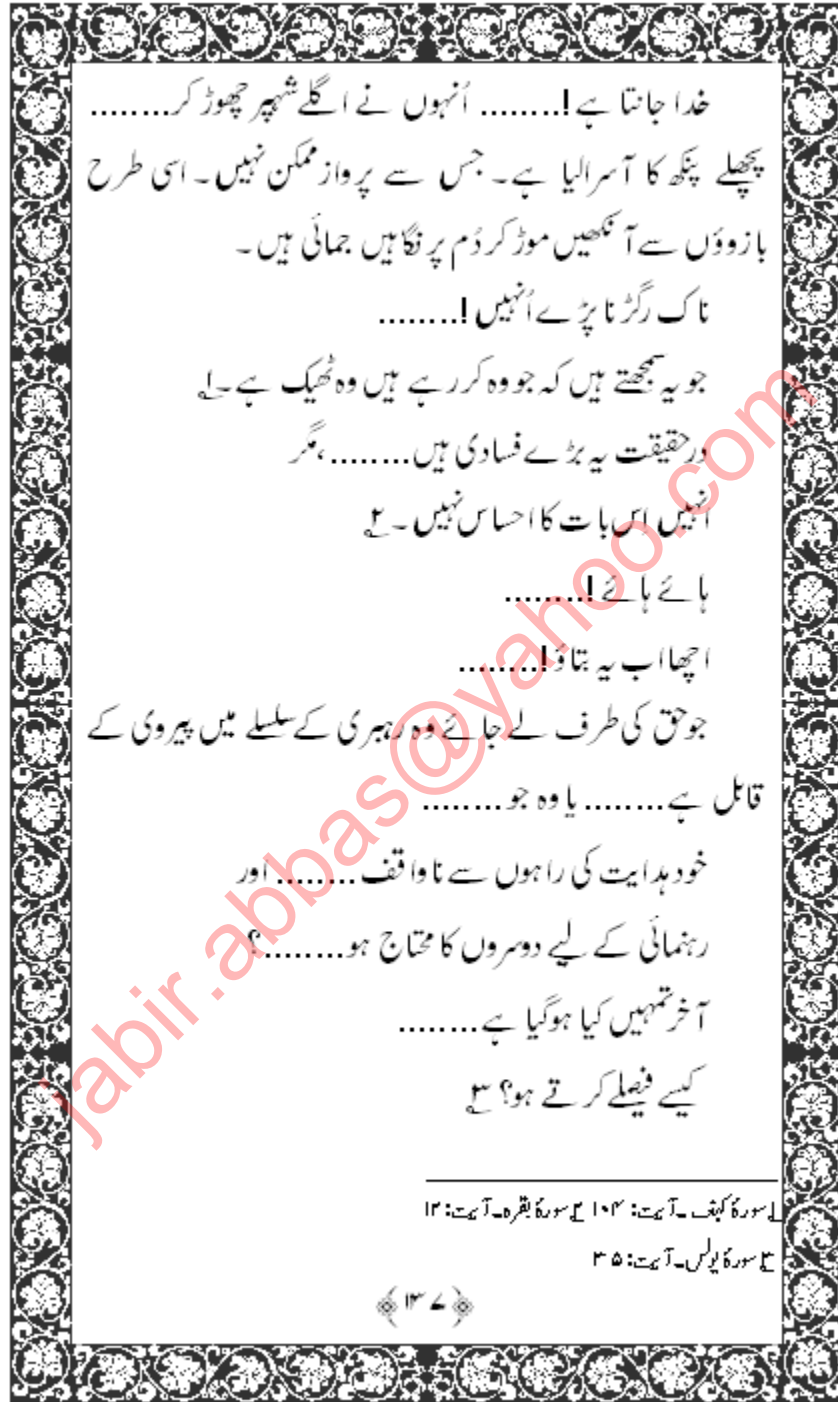 خدا جانتا ہے!........ اُنہوں نے اگلے شہپر چھوڑ کر........
پچھلے پنکھ کا آسرا لیا ہے۔ جس سے پرواز ممکن نہیں۔ اسی طرح
بازوؤں سے آنکھیں موڑ کر دُم پر نگاہیں جمائی ہیں۔
ناک رگڑنا پڑے اُنہیں!........
جو یہ سمجھتے ہیں کہ جو وہ کر رہے ہیں وہ ٹھیک ہے۔۱
درحقیقت یہ بڑے فسادی ہیں........، مگر
اُنہیں اِس بات کا احساس نہیں۔۲
ہائے ہائے!........
اچھا اب یہ بتاؤ!........
جو حق کی طرف لے جائے وہ رہبری کے سلسلے میں پیروی کے
قابل ہے........ یا وہ جو........
خود ہدایت کی راہوں سے ناواقف........ اور
رہنمائی کے لیے دوسروں کا محتاج ہو........؟
آخر تمہیں کیا ہوگیا ہے........
کیسے فیصلے کرتے ہو؟ ۳
۱ سورۂ کہف۔ آیت: ۱۰۴ ۲ سورۂ بقرہ۔ آیت: ۱۲
۳ سورۂ یونس۔ آیت: ۳۵
﴿۱۳۷﴾
jabir.abbas@yahoo.com